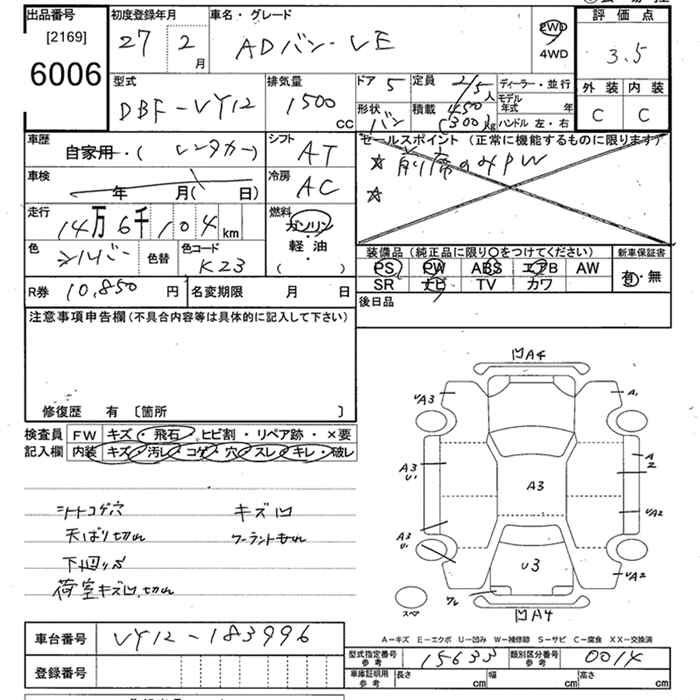 出品番号
[2169]
6006
初度登録年月
27 2月
車名・グレード
ADバン・VE
2WD
4WD
評価点
3.5
外装 内装
C C
型式
DBF-VY12
排気量
1500
CC
ドア 5
定員 2/5人
ディーラー・並行
モデル年式 年
形状 バン
積載 450 (300)kg
ハンドル 左・右
車歴
自家用・(レンタカー)
シフト
AT
セールスポイント (正常に機能するものに限ります)
☆前席のみPW
☆
車検
年 月( 日)
冷房
AC
走行
14万6千104km
燃料
ガソリン
軽油
( ・ )
色
シルバー
色替
色コード
K23
装備品(純正品に限り○をつけてください)
PS PW ABS エアB AW
SR ナビ TV カワ
新車保証書
有・無
R券 10,850円
名変期限 月 日
後日品
注意事項申告欄(不具合内容等は具体的に記入して下さい)
修復歴 有 〔箇所 〕
検査員 FW キズ・飛石・ヒビ割・リペア跡・×要
記入欄 内装 キズ・汚レ・コゲ・穴・スレ・キレ・破レ
シートコゲ穴 キズ凹
天ばり切れ クーラントもれ
下廻りサビ
荷室キズ凹、切れ
凹A4
UA3 A1
A3 U1 A2
A3
UA2
A3 U1
U3 UA2
ワレ
スペア
凹A4
A-キズ E-エクボ U-凹み W-補修跡 S-サビ C-腐食 XX-交換済
車台番号 VY12-183996
型式指定番号 参考 15633
類別区分番号 参考 0014
登録番号
車庫証明用 参考 長さ cm 幅 cm 高さ cm